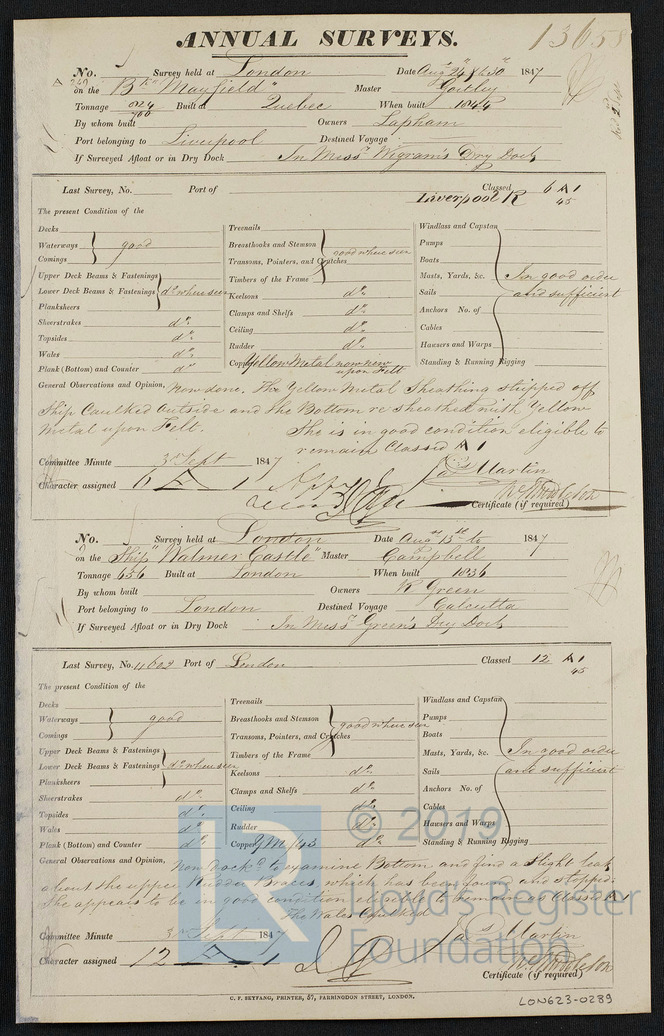 ANNUAL SURVEYS.
13658
No. 240 Survey held at London Date Augt 24 & 30 1847
on the Bk "Mayfield" Master Goitley
Tonnage 700 Built at Quebec When built 1844
By whom built Owners Lapham
Port belonging to Liverpool Destined Voyage
If Surveyed Afloat or in Dry Dock In Messrs Wigram's Dry Dock
Last Survey, No. Port of Classed 6 A 1
Liverpool R 45
The present Condition of the
Decks
Waterways good
Comings
Upper Deck Beams & Fastenings
Lower Deck Beams & Fastenings do where seen
Planksheers
Sheerstrakes do
Topsides do
Wales do
Plank (Bottom) and Counter do
Treenails
Breasthooks and Stemson good where seen
Transoms, Pointers, and Crutches
Timbers of the Frame
Keelsons do
Clamps and Shelfs do
Ceiling do
Rudder do
Copper Yellow Metal now new
upon Felt
Windlass and Capstan
Pumps
Boats
Masts, Yards, &c. In good order
Sails and sufficient
Anchors No. of
Cables
Hawsers and Warps
Standing & Running Rigging
General Observations and Opinion, Now done. The Yellow Metal Sheathing stripped off
Ship Caulked outside and the Bottom re sheathed with Yellow
Metal upon Felt. She is in good condition eligible to
remain Classed A 1
Jas Martin
Committee Minute 3rd Sept 1847
Character assigned 6 A 1
Certificate (if required) W. Middleton
No. Survey held at London Date Augt 13th to 1847
on the Ship "Walmer Castle" Master Campbell
Tonnage 656 Built at London When built 1836
By whom built Owners R Green
Port belonging to London Destined Voyage Calcutta
If Surveyed Afloat or in Dry Dock In Messrs Green's Dry Dock
Last Survey, No. 11602 Port of London Classed 12 A 1
45
The present Condition of the
Decks
Waterways good
Comings
Upper Deck Beams & Fastenings
Lower Deck Beams & Fastenings do where seen
Planksheers
Sheerstrakes do
Topsides do
Wales do
Plank (Bottom) and Counter do
Treenails
Breasthooks and Stemson good where seen
Transoms, Pointers, and Crutches
Timbers of the Frame
Keelsons do
Clamps and Shelfs do
Ceiling do
Rudder do
Copper Y M /43
Windlass and Capstan
Pumps
Boats
Masts, Yards, &c. In good order
Sails and sufficient
Anchors No. of
Cables
Hawsers and Warps
Standing & Running Rigging
General Observations and Opinion, Now Dockd to examine Bottom and find a slight leak
about the upper Rudder Braces which has been found and stopped.
She appears to be in good condition eligible to remain as Classed A 1
The Wales Caulked
Jas Martin
Committee Minute 3rd Sept 1847
Character assigned 12 A 1
W. Middleton
Certificate (if required)
C. F. SEYFANG, PRINTER, 57, FARRINGDON STREET, LONDON.
LON623-0289
LR
© 2019
Lloyd's Register
Foundation